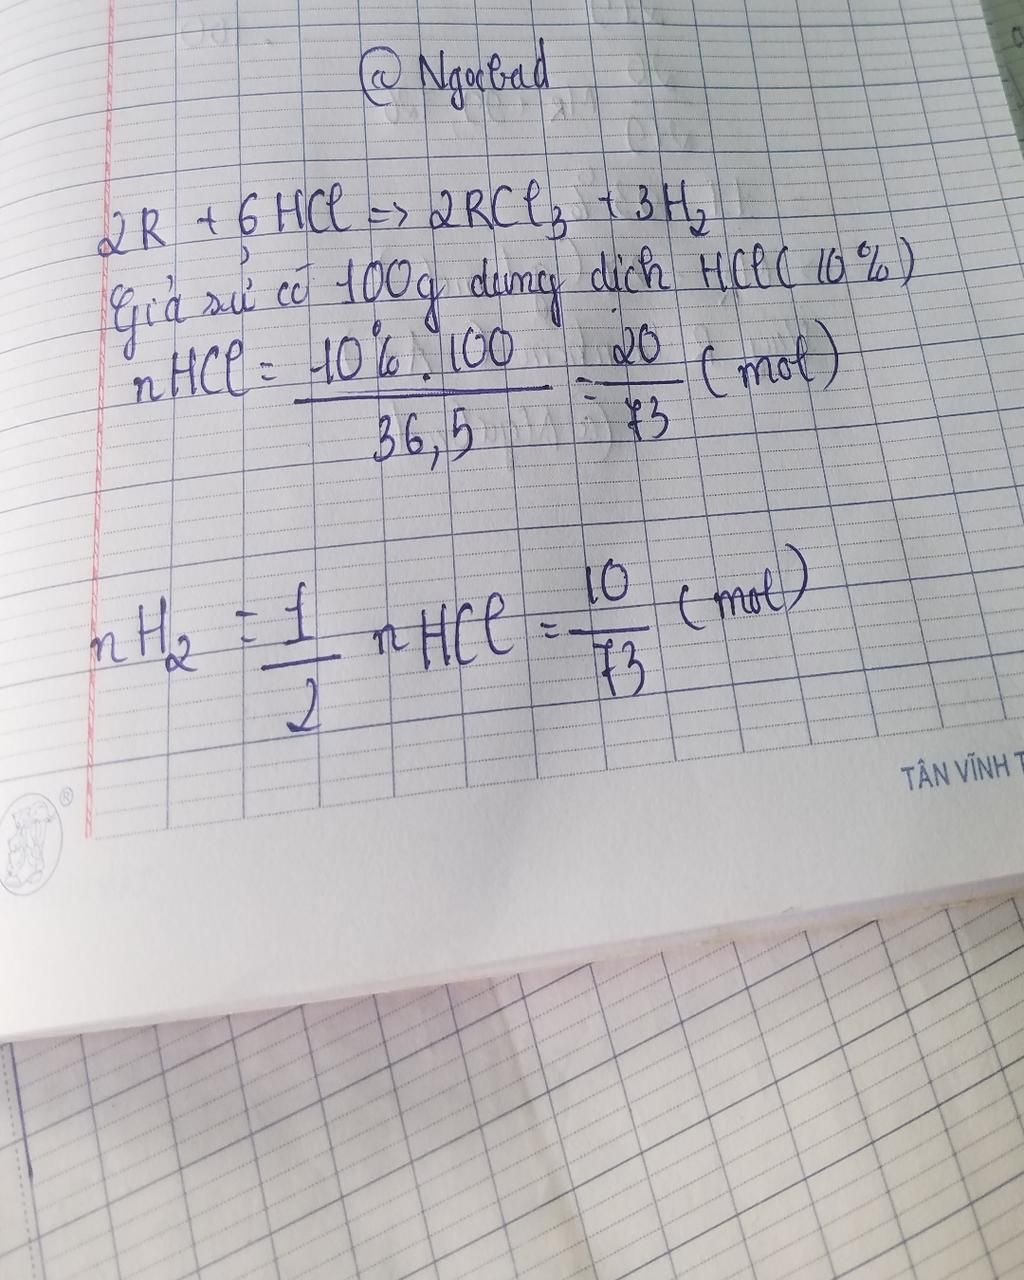 @ Ngocbad
2R + 6HCl => 2RCl₃ + 3H₂
Giả sử có 100g dung dịch HCl (10%)
nHCl = 10%.100 / 36,5 = 20/73 (mol)
nH₂ = 1/2 nHCl = 10/73 (mol)
TÂN VĨNH T
®